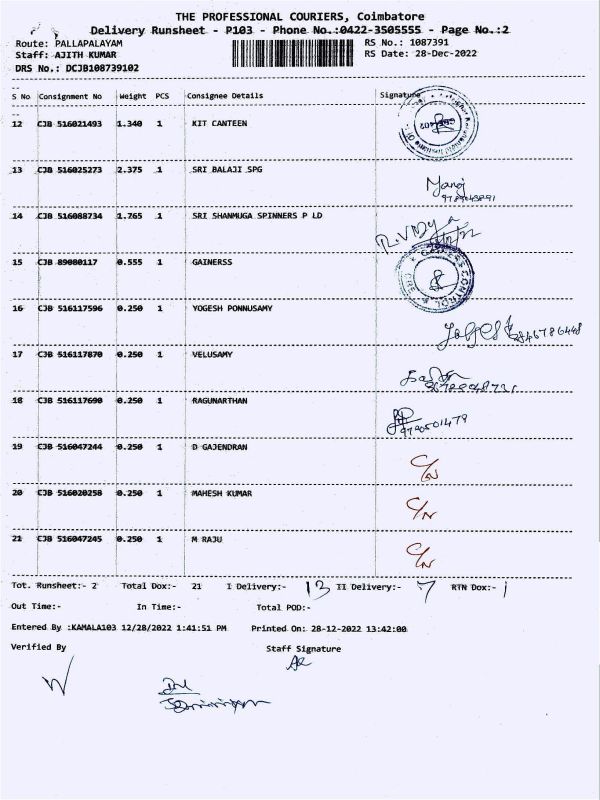 THE PROFESSIONAL COURIERS, Coimbatore
Delivery Runsheet - P103 - Phone No.:0422-3505555 - Page No.:2
Route: PALLAPALAYAM RS No.: 1087391
Staff: AJITH KUMAR RS Date: 28-Dec-2022
DRS No.: DCJB108739102
S No Consignment No Weight PCS Consignee Details Signature
12 CJB 516021493 1.340 1 KIT CANTEEN
13 CJB 516025273 2.375 1 SRI BALAJI SPG
Manoj
14 CJB 516088734 1.765 1 SRI SHANMUGA SPINNERS P LD
R.VIDya
15 CJB 89080117 0.555 1 GAINERSS
16 CJB 516117596 0.250 1 YOGESH PONNUSAMY
17 CJB 516117870 0.250 1 VELUSAMY
18 CJB 516117690 0.250 1 RAGUNARTHAN
9790501479
19 CJB 516047244 0.250 1 D GAJENDRAN
C/N
20 CJB 516020258 0.250 1 MAHESH KUMAR
C/N
21 CJB 516047245 0.250 1 M RAJU
C/N
Tot. Runsheet:- 2 Total Dox:- 21 I Delivery:- 13 II Delivery:- 7 RTN Dox:- 1
Out Time:- In Time:- Total POD:-
Entered By :KAMALA103 12/28/2022 1:41:51 PM Printed On: 28-12-2022 13:42:00
Verified By Staff Signature